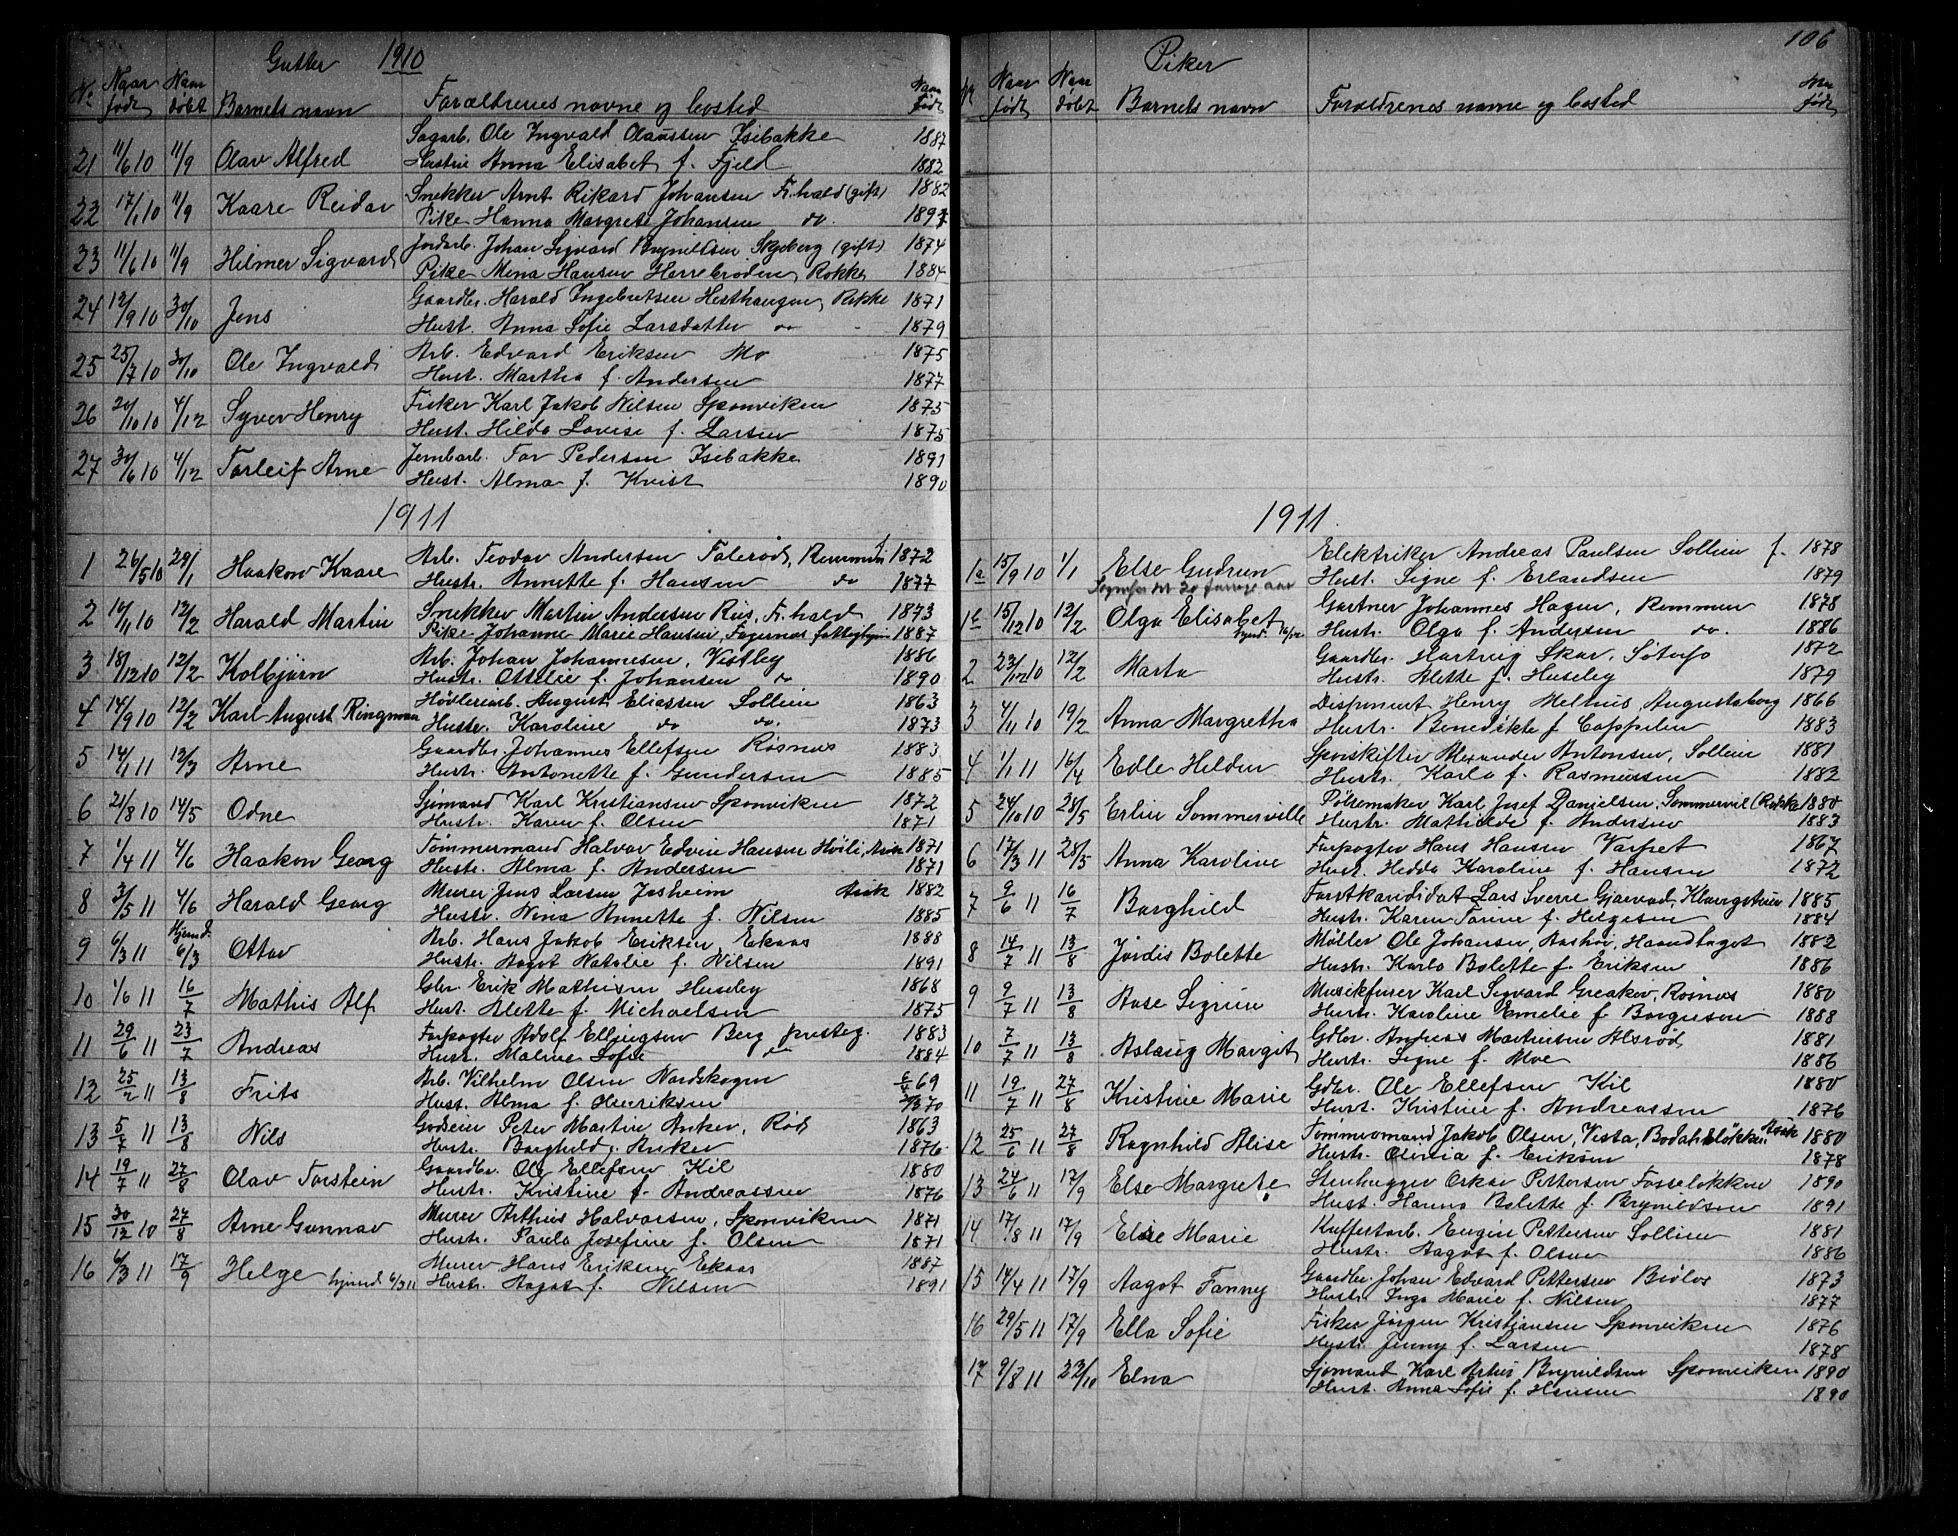 Gutter 1910
No Naar født Naar døbt Barnets navn Forældrenes navne og bosted Naar født
21 11/6 10 11/9 Olav Alfred Sagarb. Ole Ingvald Olaussen Isebakke 1887
Hustru Anna Elisabet f. Fjeld 1882
22 17/1 10 11/9 Kaare Reidar Snekker Arnt Rikard Johansen Fr.hald (gift) 1882
Pike Hanna Margrete Johansen do.
23 11/6 10 11/9 Hilmer Sigvard Jordarb. Johan Sigvard Brynildsen Skjeberg (gift) 1874
Pike Mina Hansen Herrebrøden, Rokke 1884
24 12/9 10 30/10 Jens Gaardbr. Harald Ingebretsen Hesthaugen, Rokke 1871
Hust. Anna Sofie Larsdatter do 1879
25 25/7 10 30/10 Ole Ingvald Arb. Edvard Eriksen Mo 1875
Hust. Martha f. Andersen 1877
26 20/10 10 4/12 Syver Henry Fisker Karl Jakob Nilsen Sponviken 1875
Hust. Hilda Lovise f. Larsen 1875
27 30/6 10 4/12 Torleif Arne Jernbarb. Tor Pedersen Isebakke 1891
Hust. Alma f. Kvist 1890
1911
1 26/5 10 29/1 Haakon Kaare Arb. Teodor Andersen Folerød, Remmen 1872
Hustr. Annette f. Hansen do 1877
2 10/11 10 12/2 Harald Martin Snekker Martin Andersen Riis, Fr.hald 1873
Pike Johanne Marie Hansen, Fagernes fattighjem 1887
3 18/12 10 12/2 Kolbjørn Arb. Johan Johannesen, Vestby 1886
Hustr. Ottelie f. Johansen do 1890
4 14/9 10 12/2 Karl August Ringman Høvleriarb. August Eliassen Sollien 1863
Hustr. Karoline do do. 1873
5 14/1 11 12/3 Arne Gaardbr. Johannes Ellefsen Røsnes 1883
Hustr. Antonette f. Gundersen 1885
6 21/8 10 14/5 Odne Sjømand Karl Kristiansen Sponviken 1872
Hustr. Karen f. Olsen 1871
7 1/4 11 4/6 Haakon Georg Tømmermand Halvor Edvin Hansen Høili, Asak 1871
Hustr. Alma f. Andersen 1871
8 3/5 11 4/6 Harald Georg Murer Jens Larsen Josheim Asak 1882
Hustr. Nina Annette f. Nilsen 1885
9 6/3 11 Hjemd. 6/3 Ottar Arb. Hans Jakob Eriksen, Ekaas 1888
Hustr. Aagot Natalie f. Nilsen 1891
10 1/6 11 16/7 Mathis Alf Gbr. Erik Mathisen Huseby 1868
Hust. Alette f. Michaelsen 1875
11 29/6 11 23/7 Andreas Forpagter Adolf Ellingsen Berg presteg. 1883
Hust. Malene Sofie do 1884
12 25/2 11 13/8 Frits Arb. Vilhelm Olsen Nordskogen 6/4 69
Hust. Alma f. Henriksen
13 5/7 11 13/8 Nils Godseier Peter Martin Anker, Rød 1863
Hustr. Borghild f. Anker 1876
14 19/7 11 27/8 Olav Torstein Gaardbr. Ole Ellefsen Kil 1880
Hustr. Kristine f. Andreassen 1876
15 30/12 10 27/8 Arne Gunnar Murer Arthur Halvorsen, Sponviken 1871
Hustr. Paula Josefine f. Olsen 1871
16 6/3 11 17/9 Helge hjemd 6/3 11 Murer Hans Eriksen Ekaas 1887
Hustr. Aagot f. Nilsen 1891
106
Piker
Nr Naar født Naar døbt Barnets navn Forældrenes navne og bosted Naar født
1911
1a 15/9 10 1/1 Else Gudrun Elektriker Andreas Paulsen Sollien f. 1878
Hust. Signe f. Erlandsen 1879
1b 15/12 10 12/2 Olga Elisabet Gartner Johannes Hagen, Remmen 1878
Hustr. Olga f. Andersen do. 1886
2 23/12 10 12/2 Marta Gaardbr. Hartvig Skar, Sotorp 1872
Hustr. Alette f. Huseby 1879
3 4/11 10 19/2 Anna Margretha Disponent Henry Melhus Augustaborg 1866
Hustr. Benedikte f Cappelen 1883
4 1/1 11 16/4 Edle Helden Sporskifter Alexander Antonsen, Sollien 1881
Hustr. Karla f. Rasmussen 1882
5 24/10 10 28/5 Erlin Sommerville Pølsemaker Karl Josef Danielsen, Sommervil (Rokke 1880
Hustr. Mathilde f. Andersen 1883
6 17/3 11 28/5 Anna Karoline Forpagter Hans Hansen Torpet 1867
Hust. Hedda Karoline f. Hansen 1872
7 9/6 11 16/7 Borghild Forstkandidat Lars Sverre Gjørvad, 1885
Hustr. Karen Torine f. Helgesen 1884
8 14/7 11 13/8 Jordis Bolette Møller Ole Johansen, Aashøi, Haandtaget 1882
Hustr. Karla Bolette f. Eriksen 1886
9 9/7 11 13/8 Aase Sigrun Musikfurer Karl Sigvard Greaker, Røsnes 1880
Hustr. Karoline Emelie f. Borgersen 1888
10 7/7 11 13/8 Aslaug Margit Gdbr. Andreas Martinsen Alsrød 1881
Hustr. Signe f. Moe 1886
11 19/7 11 27/8 Kristine Marie Gdbr. Ole Ellefsen Kil 1880
Hustr. Kristine f. Andreassen 1876
12 25/6 11 27/8 Ragnhild Alise Tømmermand Jakob Olsen, Vesta, Bodalsløkken Asak 1880
Hustr. Olivia f. Eriksen 1878
13 24/6 11 17/9 Else Margrete Stenhugger Oskar Pettersen Fosseløkken 1890
Hust. Hanna Bolette f. Brynildsen 1891
14 17/8 11 17/9 Else Marie Kuffertarb. Eugen Pettersen Sollien 1881
Hustr. Aagot f. Olsen 1886
15 14/4 11 17/9 Aagot Fanny Gaardbr. Johan Edvard Pettersen 1873
Hustr. Inga Marie f. Nilsen 1877
16 29/5 11 17/9 Ella Sofie Fisker Jørgen Kristiansen Sponviken 1876
Hustr. Jenny f. Larsen 1878
17 9/8 11 22/10 Elna Sjømand Karl Artur Brynildsen Sponviken 1890
Hust. Anna Sofie f. Hansen 1890